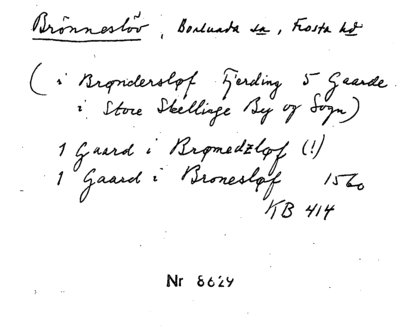 Brönneslöv, Borlunda sn, Frosta hd
(i Brøndersløf Fjerding 5 Gaarde
i Store Skellinge By og Sogn)
1 Gaard i Brømedzløf (!)
1 Gaard i Bronesløf 1560
KB 414
Nr 8624